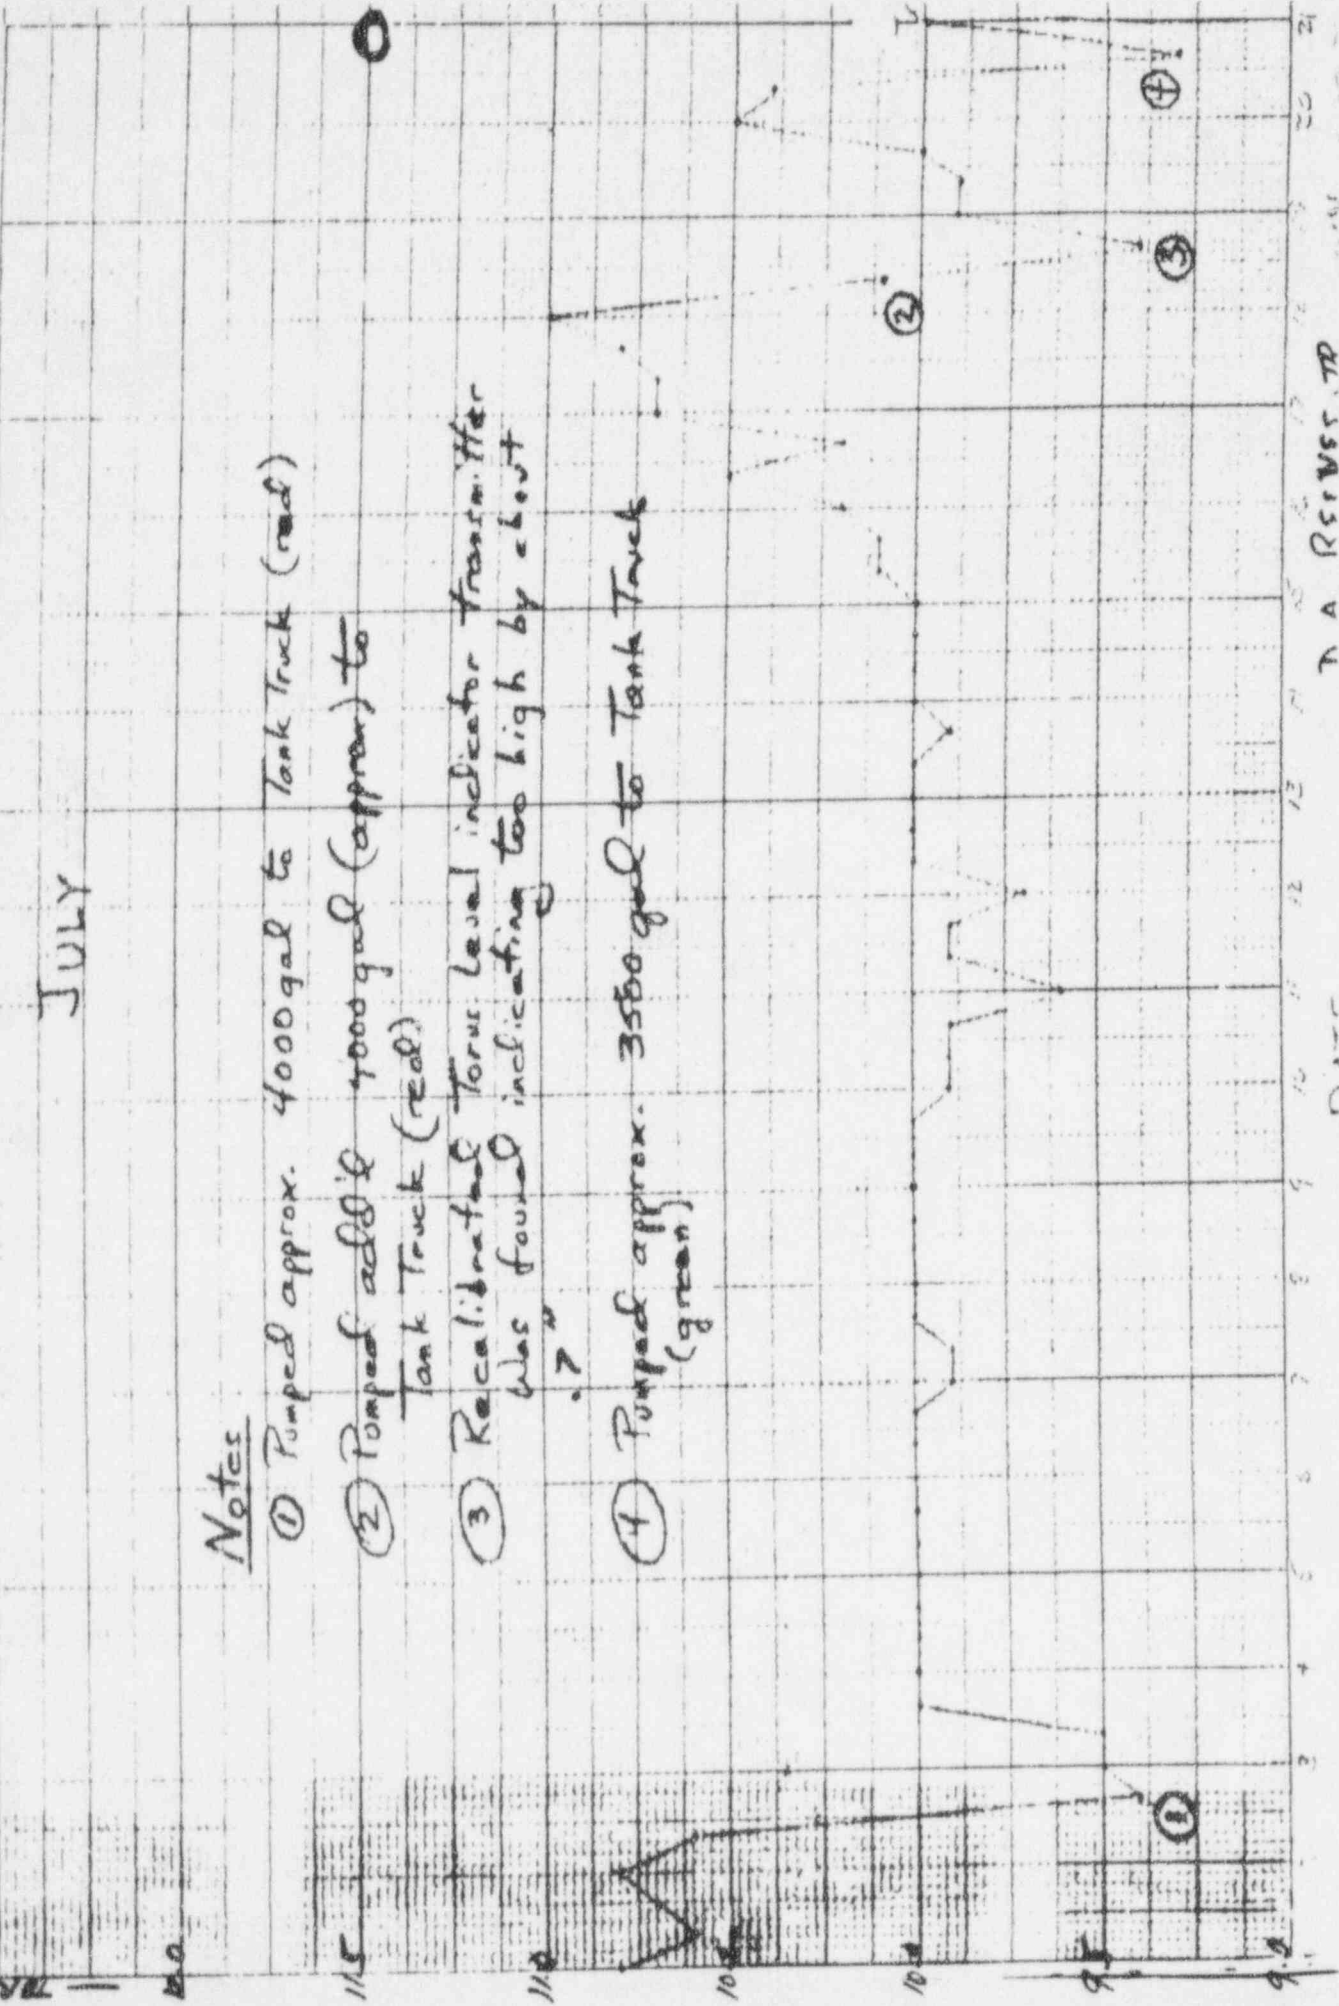 JULY
Notes
① Pumped approx. 4000 gal to Tank Truck (red)
② Pumped add'l 4000 gal (approx) to
Tank Truck (red)
③ Recalibrated Torus Level indicator transmitter
Was found indicating too high by about
.7"
④ Pumped approx. 3500 gal to Tank Truck
(green)
11.5
11.0
10
9.5
9.0
①
②
③
④
3 4 7 8 9 10 11 12 13 20 21